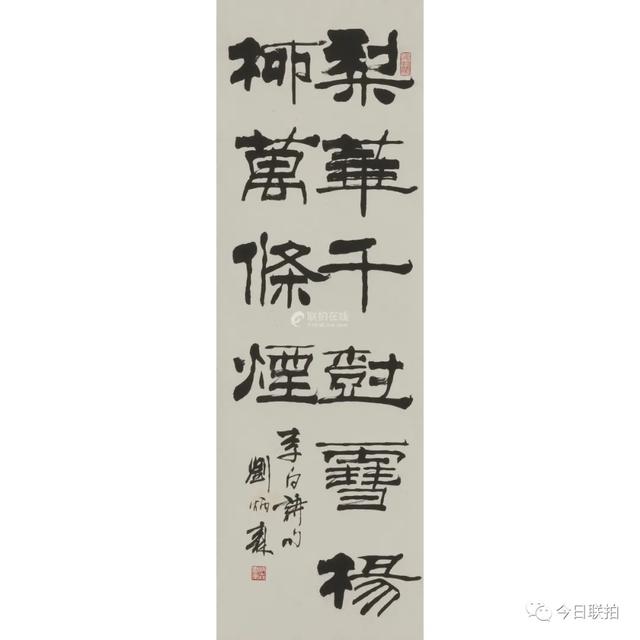 梨華千尌雪楊
柳萬條煙
李白詩句
劉炳森
联拍在线
今日联拍